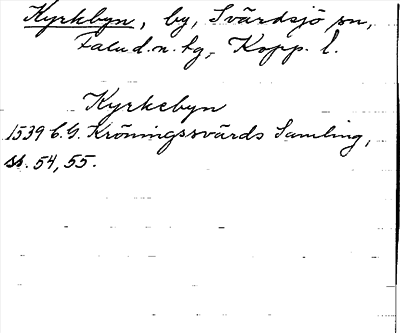 Kyrkbyn, by, Svärdsjö sn,
Falu d. n. tg, Kopp. l.
Kyrkebyn
1539 C. G. Kröningssvärds Samling,
ss. 54, 55.